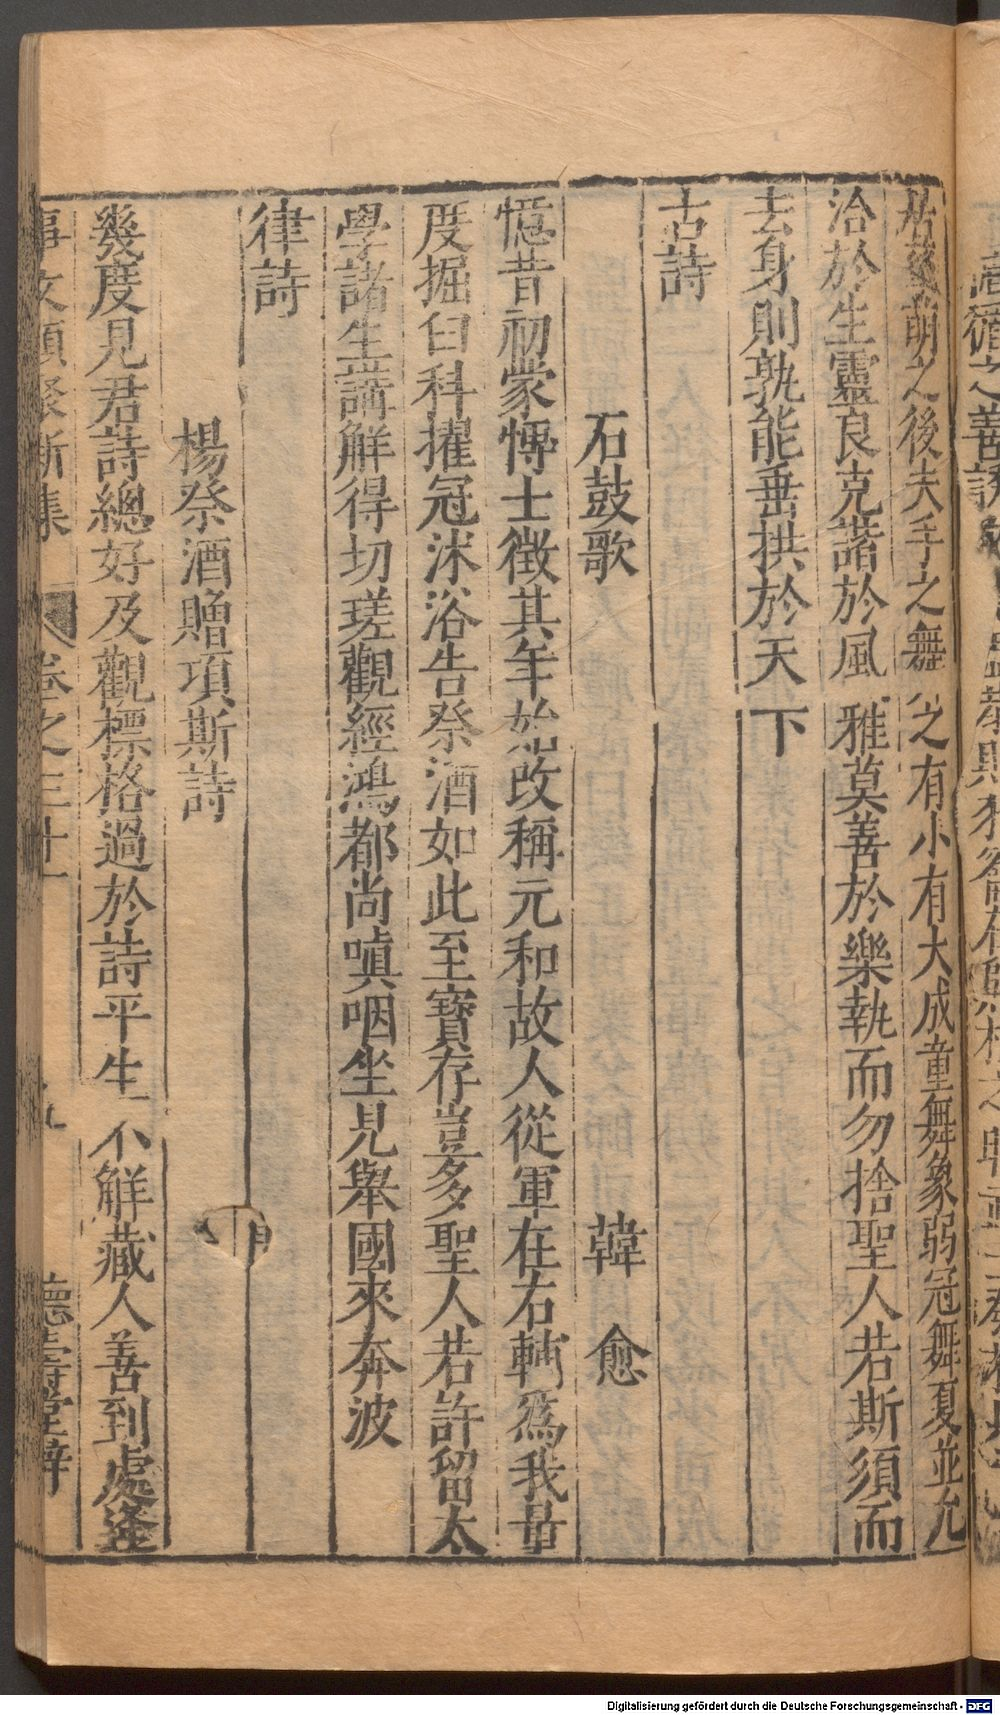 之後夫子之舞㕛之有小有大成童舞象弱冠舞夏並允
洽於生靈良克諧於風雅莫善於樂執而勿捨聖人若斯須而
去身則孰能垂拱於天下
古詩
石鼓歌 韓愈
憶昔初蒙博士徵其年始改稱元和故人從軍在右輔爲我量
度掘臼科擢冠沐浴告祭酒如此至寶存豈多聖人若許留太
學諸生講解得切瑳觀經鴻都尚嗔咽坐見舉國來奔波
律詩
楊祭酒贈項斯詩
幾度見君詩總好及觀標格過於詩平生不觧藏人善到處逢
事文類聚新集 卷之三十一 九 德壽堂梓
Digitalisierung gefördert durch die Deutsche Forschungsgemeinschaft - DFG